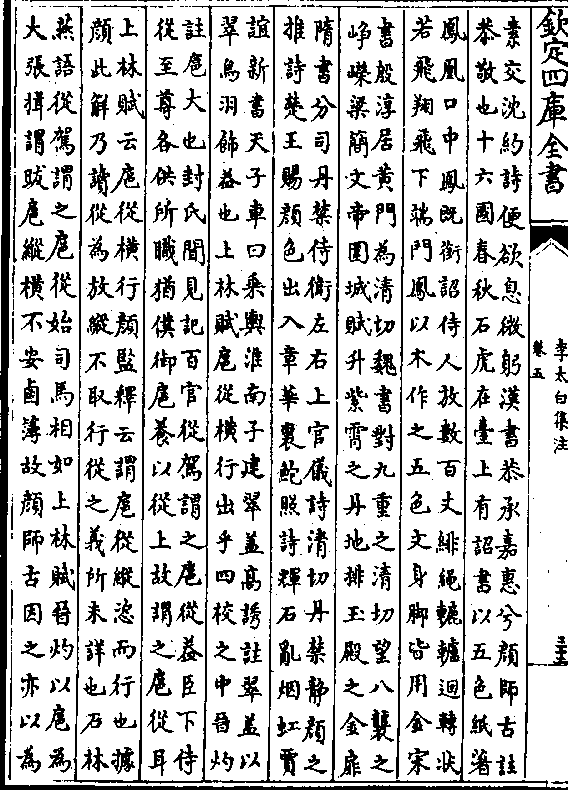 欽定四庫全書
李太白集注
卷五
素交沈約詩便欲息微躬漢書恭承嘉惠兮顔師古註
恭敬也十六國春秋石虎在臺上有詔書以五色紙著
鳳凰口中鳳既銜詔侍人放數百丈緋繩轆轤迴轉狀
若飛翔飛下端門鳳以木作之五色文身脚皆用金宋
書殷淳居黄門為清切魏書對九重之清切望八襲之
崢嶸梁簡文帝圍城賦升紫霄之丹地排玉殿之金扉
隋書分司丹禁侍衛左右上官儀詩清切丹禁静顔之
推詩楚王賜顔色出入章華裏鮑照詩輝石亂烟虹賈
誼新書天子車曰乘輿淮南子建翠葢高誘註翠葢以
翠鳥羽飾葢也上林賦扈從橫行出乎四校之中晉灼
註扈大也封氏聞見記百官從駕謂之扈從葢臣下侍
從至尊各供所職猶僕御扈養以從上故謂之扈從耳
上林賦云扈從橫行顔監釋云謂扈從縱恣而行也據
顔此解乃讀從為放縱不取行從之義所未詳也石林
燕語從駕謂之扈從始司馬相如上林賦晉灼以扈為
大張揖謂跋扈縱橫不安鹵簿故顔師古因之亦以為